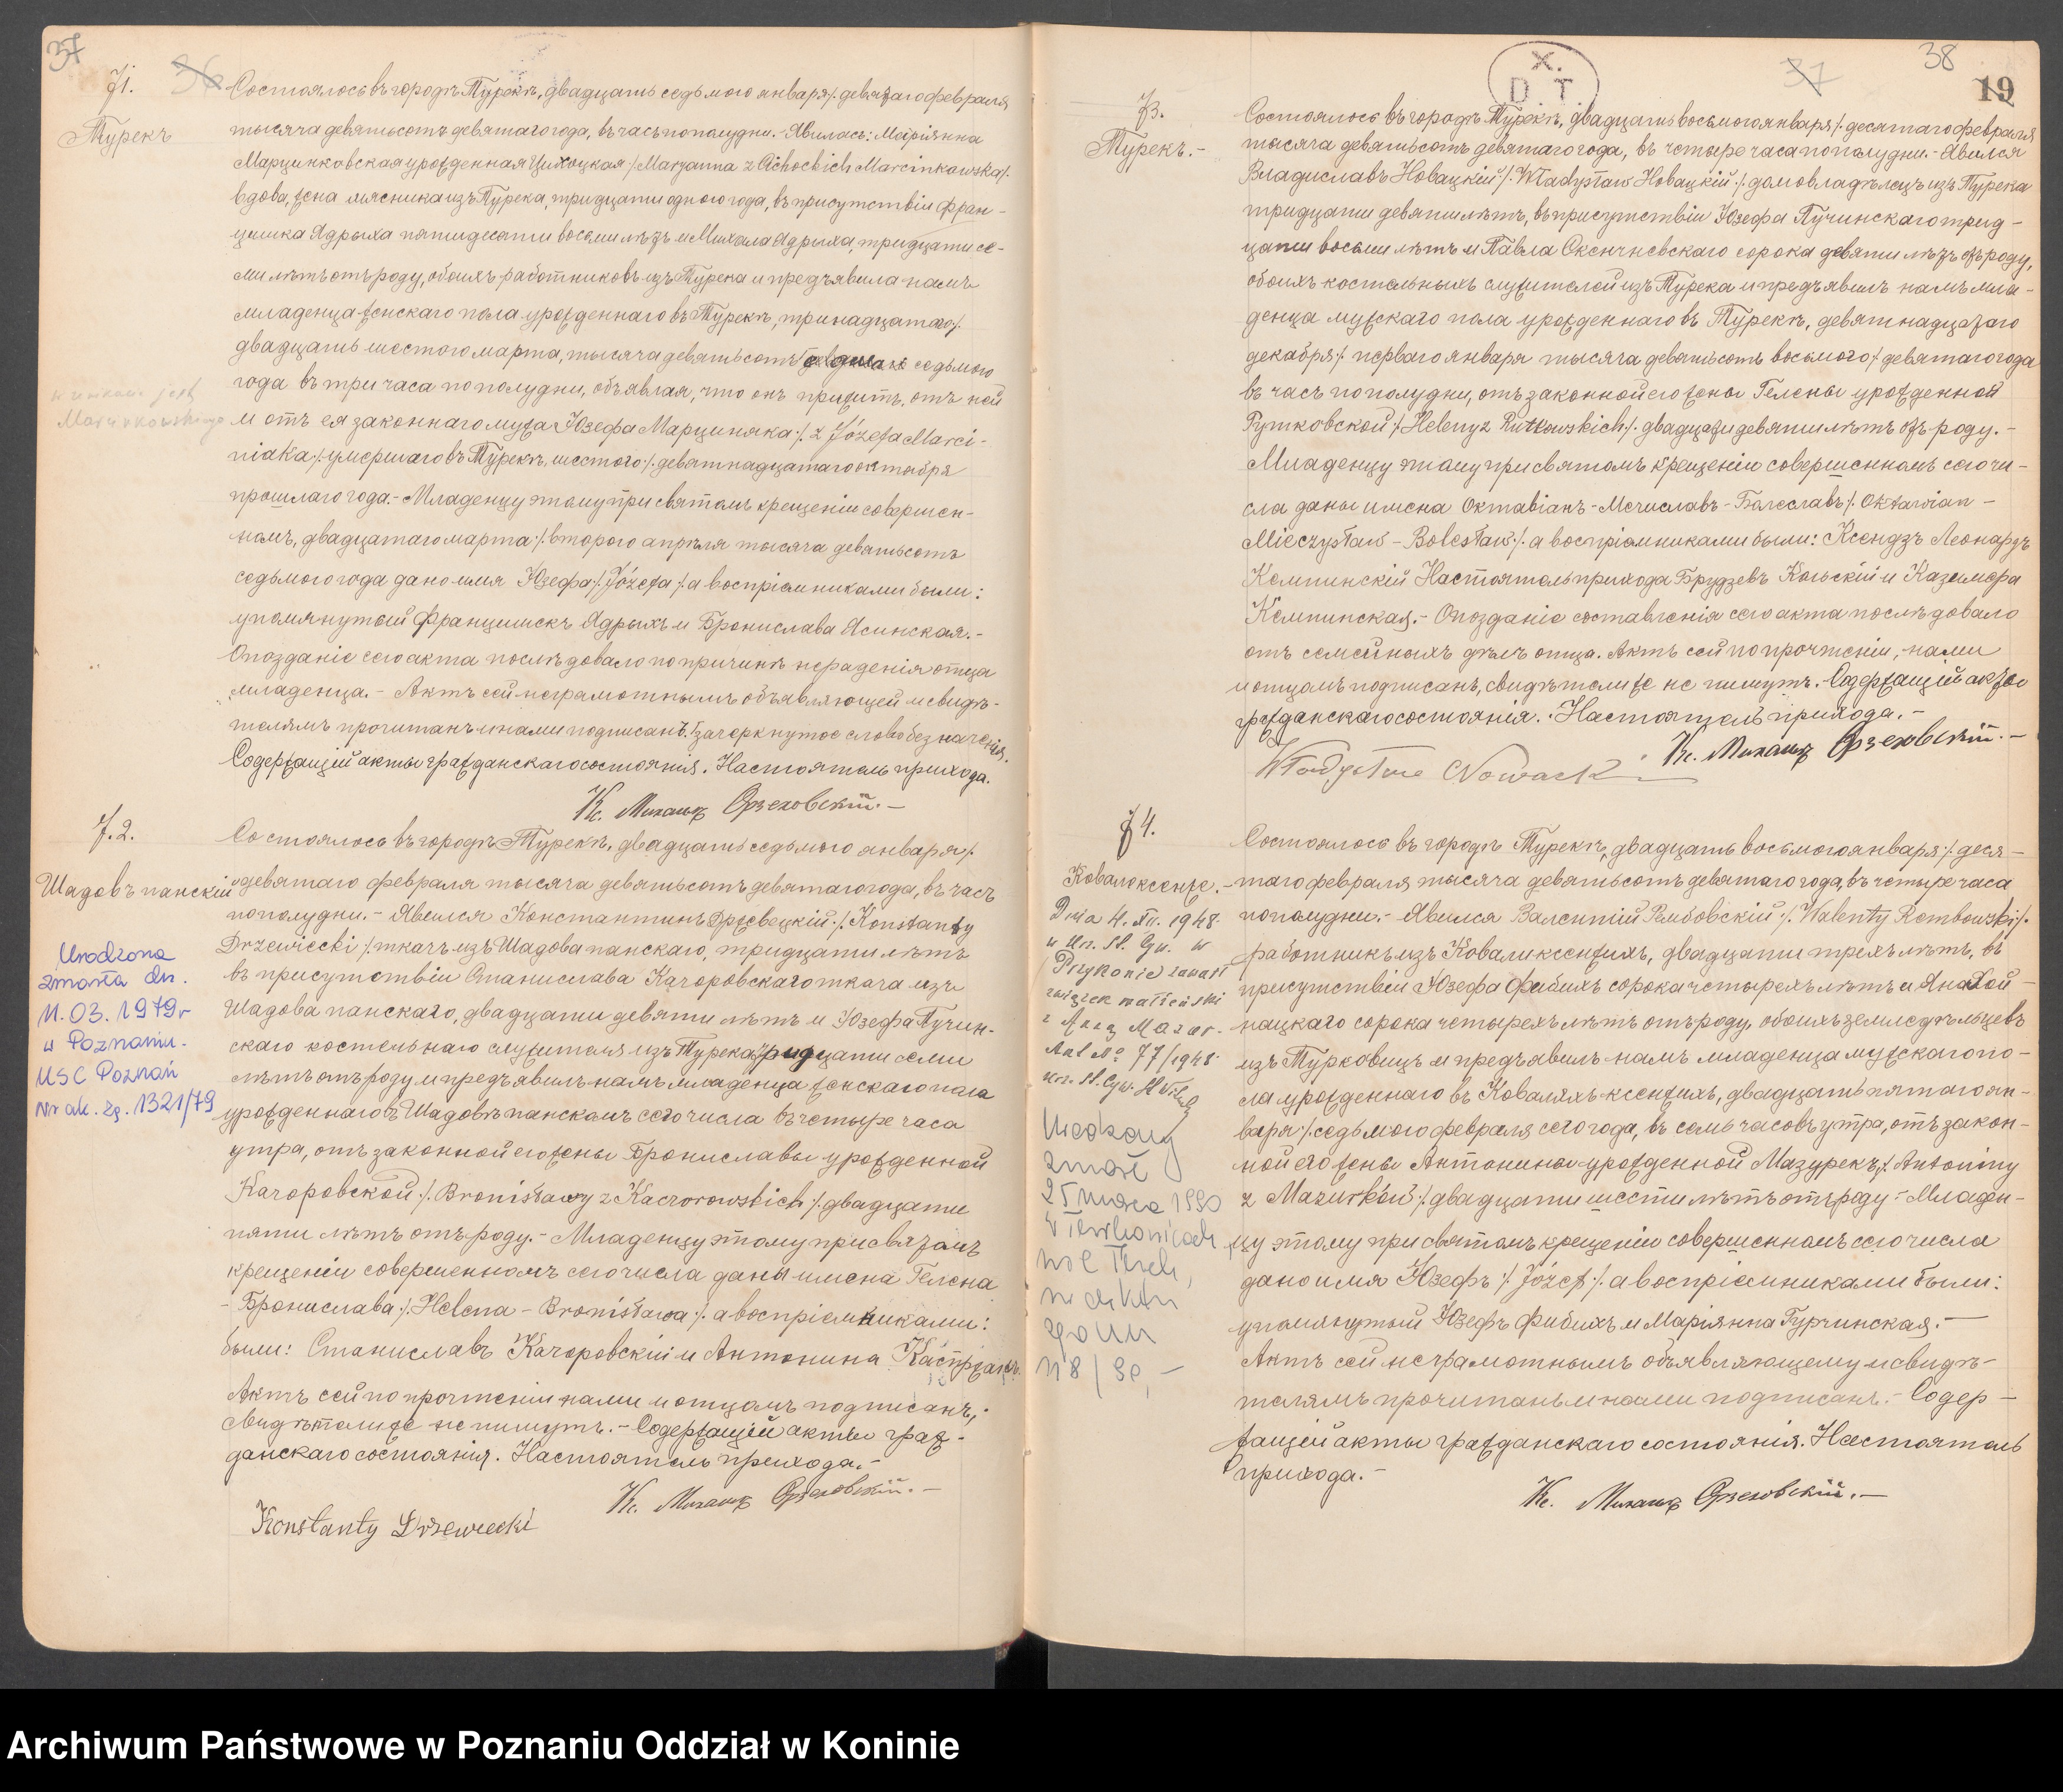 37
36
71.
Турекъ
Состоялось въ городѣ Турекѣ, двадцать седьмого января/девятаго февраля
тысяча девятьсотъ девятаго года, въ часъ пополудни. - Явилась: Маріянна
Марцинковская урожденная Цихоцкая /Maryanna z Cichockich Marcinkowska/.
вдова, жена мясника изъ Турека, тридцати одного года, въ присутствіи Фран-
цишка Ядрыха пятидесяти восьми лѣтъ и Михала Ядрыха, тридцати се-
ми лѣтъ отъ роду, обоихъ работниковъ изъ Турека и предъявила намъ
младенца женскаго пола урожденнаго въ Турекѣ, тринадцатаго/.
двадцать шестого марта, тысяча девятьсотъ седьмого
года въ три часа пополудни, объявляя, что онъ прижитъ, отъ ней
Marcinkowskiego
и отъ ея законнаго мужа Юзефа Марциняка ./. z Józefa Marci-
niaka ./. умершаго въ Турекѣ, шестого ./. девятнадцатаго октября
прошлаго года. - Младенцу этому при святомъ крещеніи совершен-
номъ, двадцатаго марта ./. второго апрѣля тысяча девятьсотъ
седьмого года дано имя Юзефа ./. Józefa ./. а воспріемниками были:
упомянутый Францишекъ Ядрыхъ и Бронислава Ясинская. -
Опозданіе сего акта послѣдовало по причинѣ нераденія отца
младенца. - Актъ сей неграмотнымъ объявляющей и свидѣ-
телямъ прочитанъ и нами подписанъ. Зачеркнутое слово безъ значенія.
Содержащій акты гражданскаго состоянія. Настоятель прихода.
Кс. Михаилъ Орзеховскій. -
72.
Шадовъ панскій
Состоялось въ городѣ Турекѣ, двадцать седьмого января/.
девятаго февраля тысяча девятьсотъ девятаго года, въ часъ
пополудни. - Явился Константинъ Држевецкій ./. Konstanty
Drzewiecki ./. ткачъ изъ Шадова панскаго, тридцати лѣтъ
въ присутствіи Станислава Качоровскаго ткача изъ
Шадова панскаго, двадцати девяти лѣтъ и Юзефа Пучин-
скаго костельнаго служителя изъ Турека тридцати семи
лѣтъ отъ роду и предъявилъ намъ младенца женскаго пола
урожденнаго въ Шадовѣ панскомъ сего числа въ четыре часа
утра, отъ законной его жены Брониславы урожденной
Качоровской ./. Bronisławy z Kaczorowskich ./. двадцати
пяти лѣтъ отъ роду. - Младенцу этому при святомъ
крещеніи совершенномъ сего числа даны имена Гелена
- Бронислава ./. Helena - Bronisława ./. а воспріемниками:
были: Станиславъ Качоровскій и Антонина Каспржакъ.
Актъ сей по прочтеніи нами и отцомъ подписанъ,
свидѣтели же не пишутъ. - Содержащій акты граж-
данскаго состоянія. Настоятель прихода. -
Кс. Михаилъ Орзеховскій. -
Konstanty Drzewiecki
Urodzona
zmarła dn.
11.03.1979r
w Poznaniu.
USC Poznań
Nr ak. zg. 1321/79
X.
D T
37
38
19
73.
Турекъ. -
Состоялось въ городѣ Турекѣ, двадцать восьмого января ./. десятаго февраля
тысяча девятьсотъ девятаго года, въ четыре часа пополудни. - Явился
Владиславъ Новацкій ./. Władysław Новацкій ./. домовладѣлецъ изъ Турека
тридцати девяти лѣтъ, въ присутствіи Юзефа Пучинскаго трид-
цати восьми лѣтъ и Павла Оксенчневскаго сорока девяти лѣтъ отъ роду,
обоихъ костельныхъ служителей изъ Турека и предъявилъ намъ мла-
денца мужскаго пола урожденнаго въ Турекѣ, девятнадцатаго
декабря ./. перваго января тысяча девятьсотъ восьмого/девятаго года
въ часъ пополудни, отъ законной его жены Гелены урожденной
Рутковской ./. Heleny z Rutkowskich ./. двадцати девяти лѣтъ отъ роду. -
Младенцу этому при святомъ крещеніи совершенномъ сего чи-
сла даны имена Октавіанъ - Мечиславъ - Болеславъ ./. Oktawian -
Mieczysław - Bolesław ./. а воспріемниками были: Ксендзъ Леонардъ
Кемпинскій Настоятель прихода Брудзевъ Кольскій и Казимера
Кемпинская. - Опозданіе составленія сего акта послѣдовало
отъ семейныхъ дѣлъ отца. Актъ сей по прочтеніи, нами
и отцомъ подписанъ, свидѣтели же не пишутъ. - Содержащій акты
гражданскаго состоянія. - Настоятель прихода. -
Кс. Михаилъ Орзеховскій. -
Władysław Nowacki
74.
Ковале ксенже. -
Состоялось въ городѣ Турекѣ, двадцать восьмого января ./. деся-
таго февраля тысяча девятьсотъ девятаго года, въ четыре часа
пополудни. - Явился Валентій Рембовскій ./. Walenty Rembowski ./.
работникъ изъ Ковали ксенжихъ, двадцати трехъ лѣтъ, въ
присутствіи Юзефа Фибихъ сорока четырехъ лѣтъ и Яна Хой-
нацкаго сорока четырехъ лѣтъ отъ роду, обоихъ земледѣльцевъ
изъ Турковицъ и предъявилъ намъ младенца мужскаго по-
ла урожденнаго въ Коваляхъ-ксенжихъ, двадцать пятаго ян-
варя ./. седьмого февраля сего года, въ семь часовъ утра, отъ закон-
ной его жены Антонины урожденной Мазурекъ ./. Antoniny
z Mazurków ./. двадцати шести лѣтъ отъ роду - Младен-
цу этому при святомъ крещеніи совершенномъ сего числа
дано имя Юзефъ ./. Józef ./. а воспріемниками были:
упомянутый Юзефъ Фибихъ и Маріянна Гурчинская. -
Актъ сей неграмотнымъ объявляющему и свидѣ-
телямъ прочитанъ и нами подписанъ. - Содер-
жащій акты гражданскаго состоянія. Настоятель
прихода. -
Кс. Михаилъ Орзеховскій. -
Dnia 4. XII. 1948
w Urz. St. Cyw. w
Przykonie zawarł
związek małżeński
z Anną Mazur.
Akt No 77/1948
Urz. St. Cyw.
zmarł
1990
118/90, -
Archiwum Państwowe w Poznaniu Oddział w Koninie